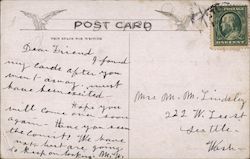 POST CARD
THIS SPACE FOR WRITING
Dear Friend I found
my cards after you
went away, must
have been excited
Hope you
will come over soon
again. Have you seen
the comet? We have
not but are going
to keep on looking. Mc
Mrs M. M. Lindsley
222 W. Lee st
Seattle
Wash.